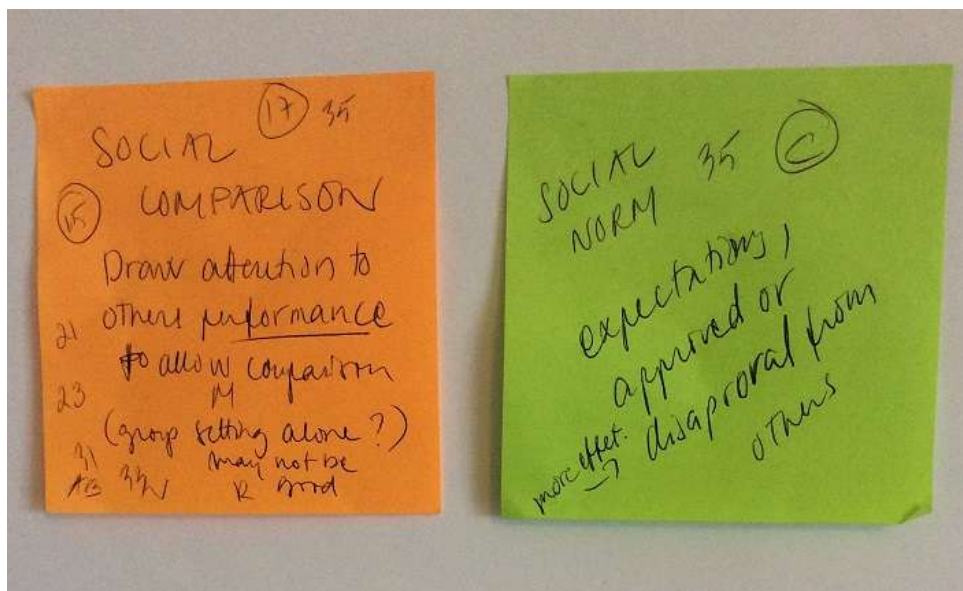 17 35
SOCIAL
15 COMPARISON
Draw attention to
21 others performance
to allow comparison
23 M
(group setting alone?)
31 may not be
AB R good
SOCIAL 35 C
NORM
expectations,
approved or
disaproval from
others
more effet.